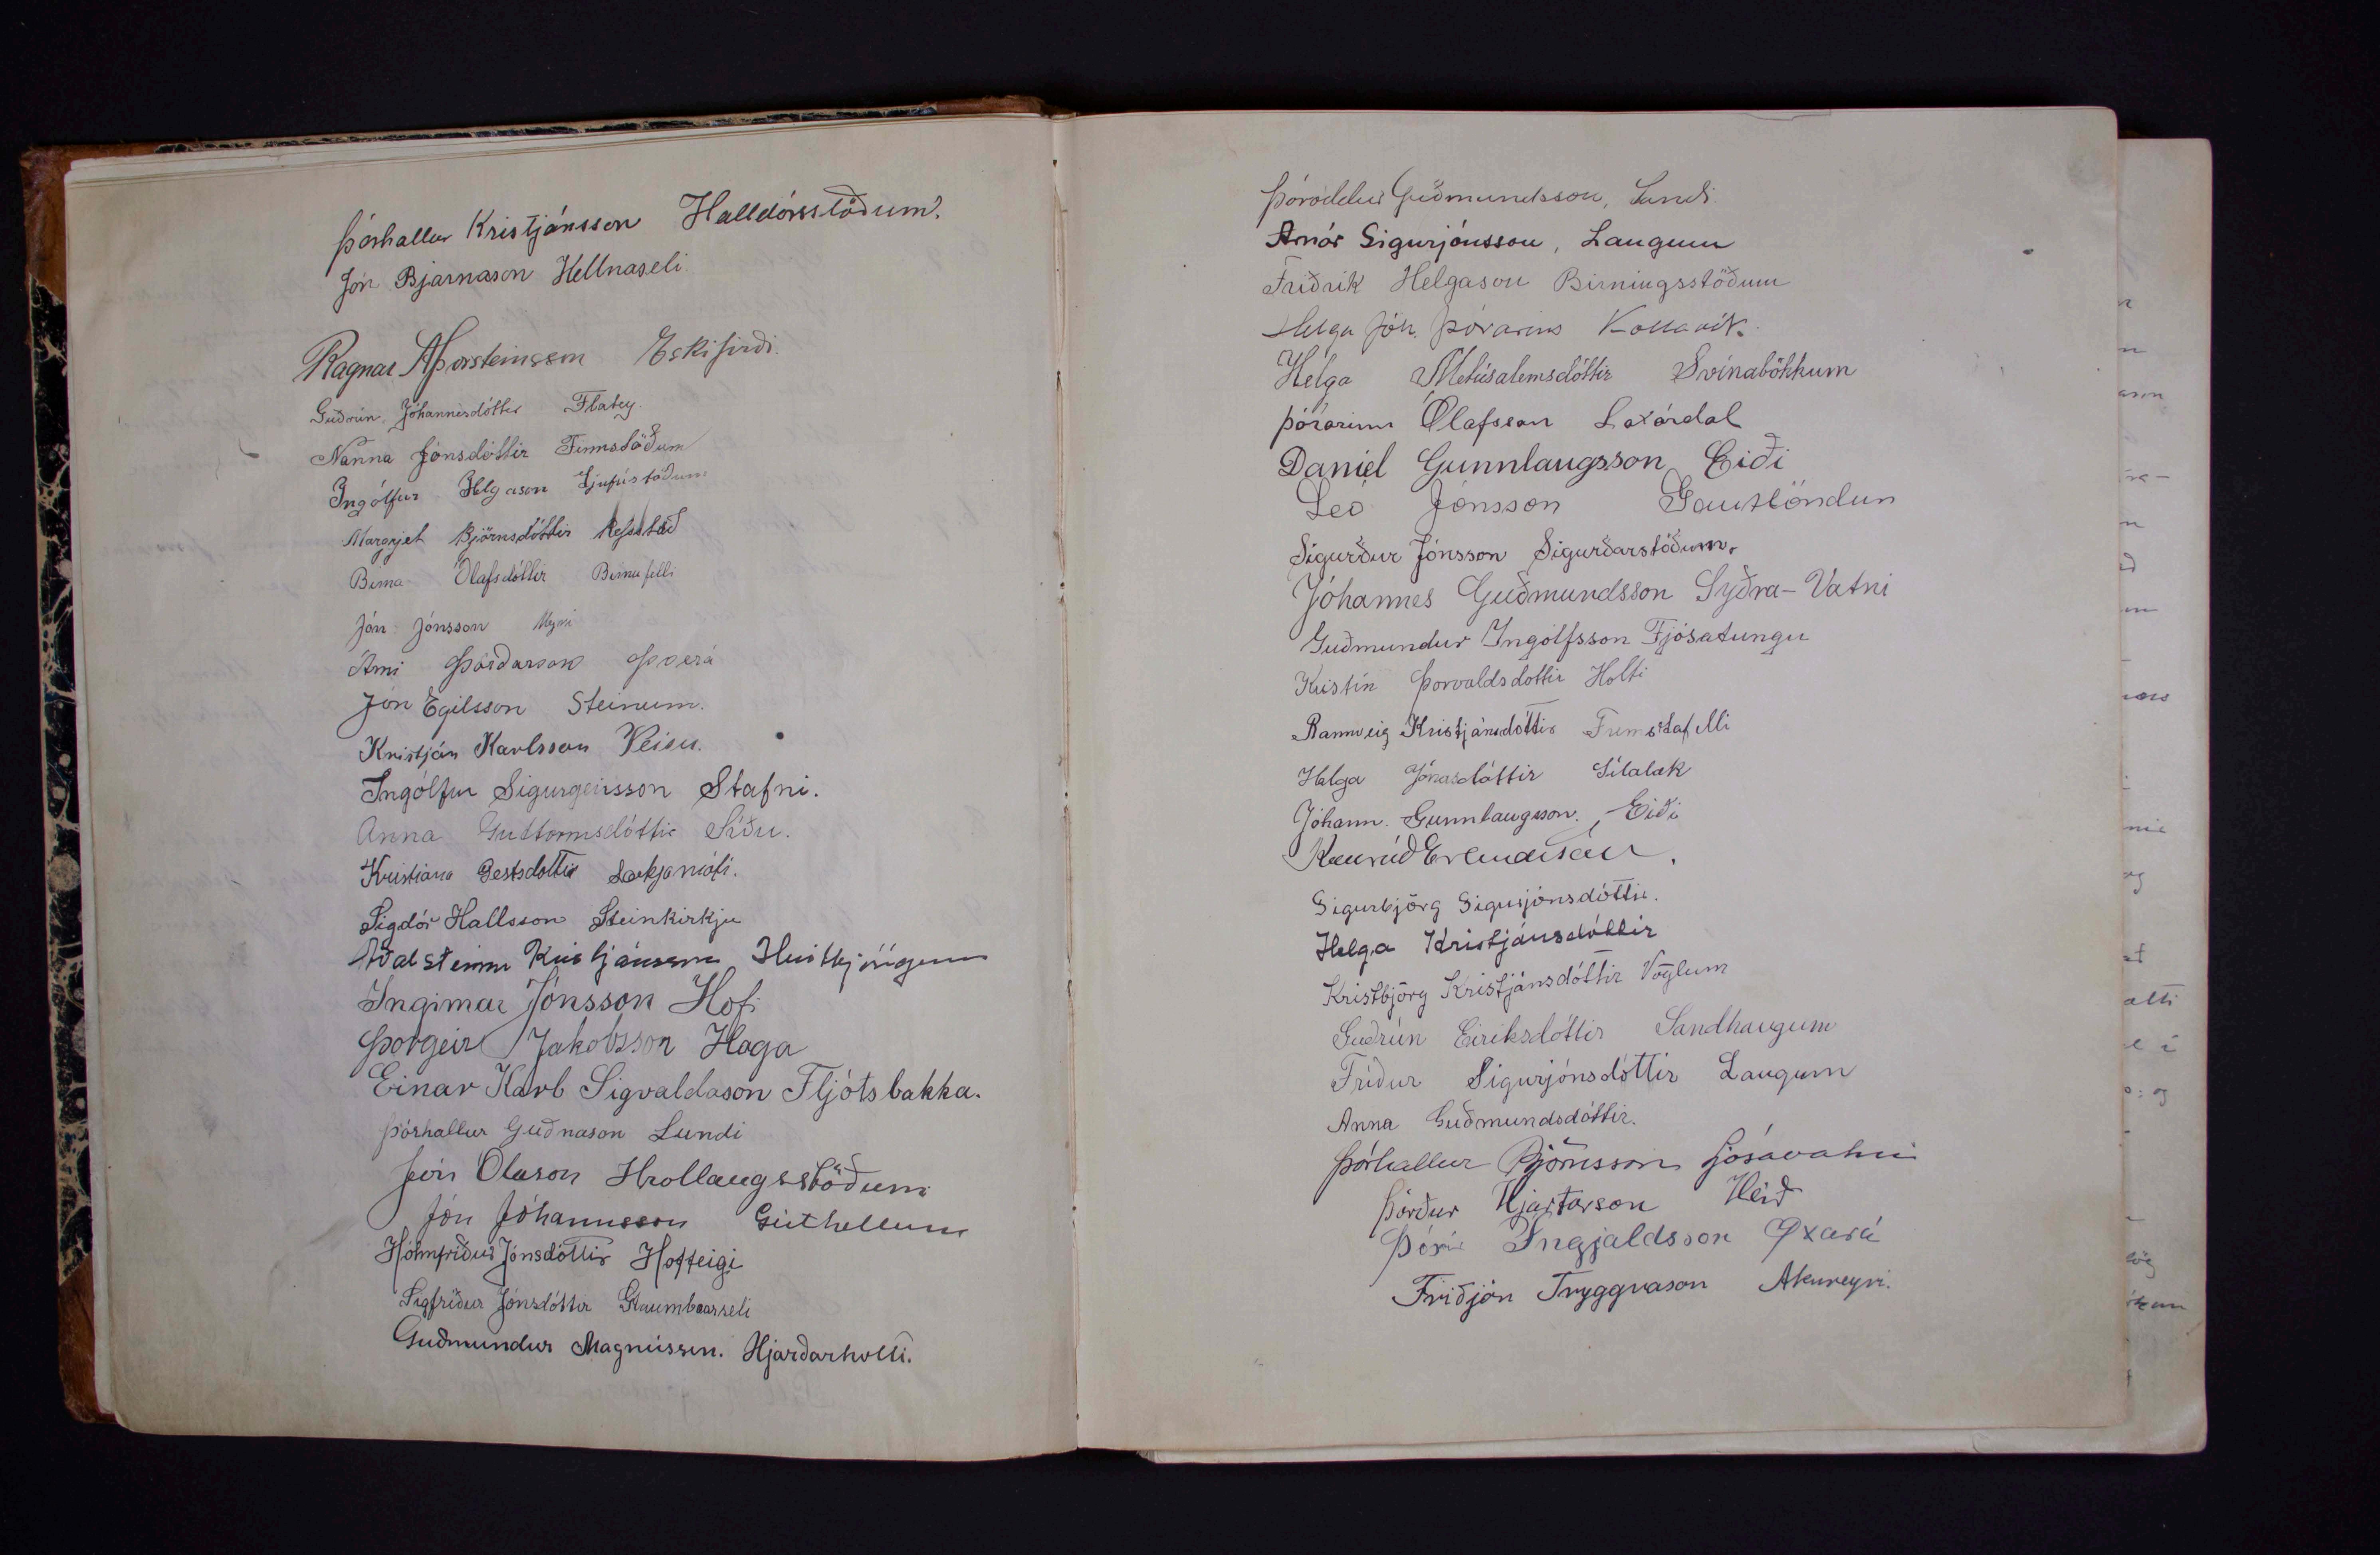 Þórhallur Kristjánsson Halldórsstöðum.
Jón Bjarnason Hellnaseli.
Ragnar A Þorsteinsson Eskifirði.
Guðrún Jóhannesdóttir Flatey.
Nanna Jónsdóttir Finnsstöðum
Ingólfur Helgason
Margrjet Björnsdóttir Refsstað
Birna Ólafsdóttir Birnufelli
Jón Jónsson
Árni Þórðarson Þverá
Jón Egilsson Steinum.
Kristján Karlsson Veisu.
Ingólfur Sigurgeirsson Stafni.
Anna Guttormsdóttir Síðu.
Kristíana Gestsdóttir Lækjamóti.
Sigdór Hallsson Steinkirkju
Aðalsteinn Kristjánsson
Ingimar Jónsson Hofi
Þorgeir Jakobsson Haga
Einar Karl Sigvaldason Fljótsbakka.
Þórhallur Guðnason Lundi
Jón Ólason Hrollaugsstöðum
Jón Jóhannsson Geithellum
Hólmfríður Jónsdóttir Hofteigi
Sigfríður Jónsdóttir Glaumbæarseli
Guðmundur Magnússon. Hjarðarholti.
Þóroddur Guðmundsson, Sandi.
Arnór Sigurjónsson, Laugum
Friðrik Helgason Birningsstöðum
Helga Jóh. Þórarins Kollavík.
Helga Metúsalemsdóttir Svínabökkum
Þórarinn Ólafsson Laxárdal
Daníel Gunnlaugsson Eiði
Leó Jónsson Gautlöndum
Sigurður Jónsson Sigurðarstöðum.
Jóhannes Guðmundsson Syðra-Vatni
Guðmundur Ingólfsson Fjósatungu
Kristín Þorvaldsdóttir Holti
Rannveig Kristjánsdóttir Fremstafelli
Helga Jónasdóttir Sílalæk
Jóhann Gunnlaugsson. Eiði
Konráð Erlendsson.
Sigurbjörg Sigurjónsdóttir.
Helga Kristjánsdóttir
Kristbjörg Kristjánsdóttir Vöglum
Guðrún Eiríksdóttir Sandhaugum
Fríður Sigurjónsdóttir Laugum
Anna Guðmundsdóttir.
Þórhallur Björnsson Ljósavatni
Þórður Hjartarson
Þórir Ingjaldsson Öxará
Friðjón Tryggvason Akureyri.